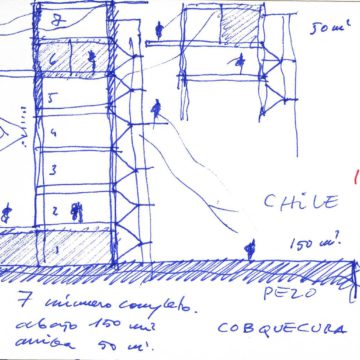 7
6
5
4
3
2
1
50 m²
CHiLE
150 m².
PEZO
COBQUECURA
7 número completo.
abajo 150 m²
arriba 50 m².